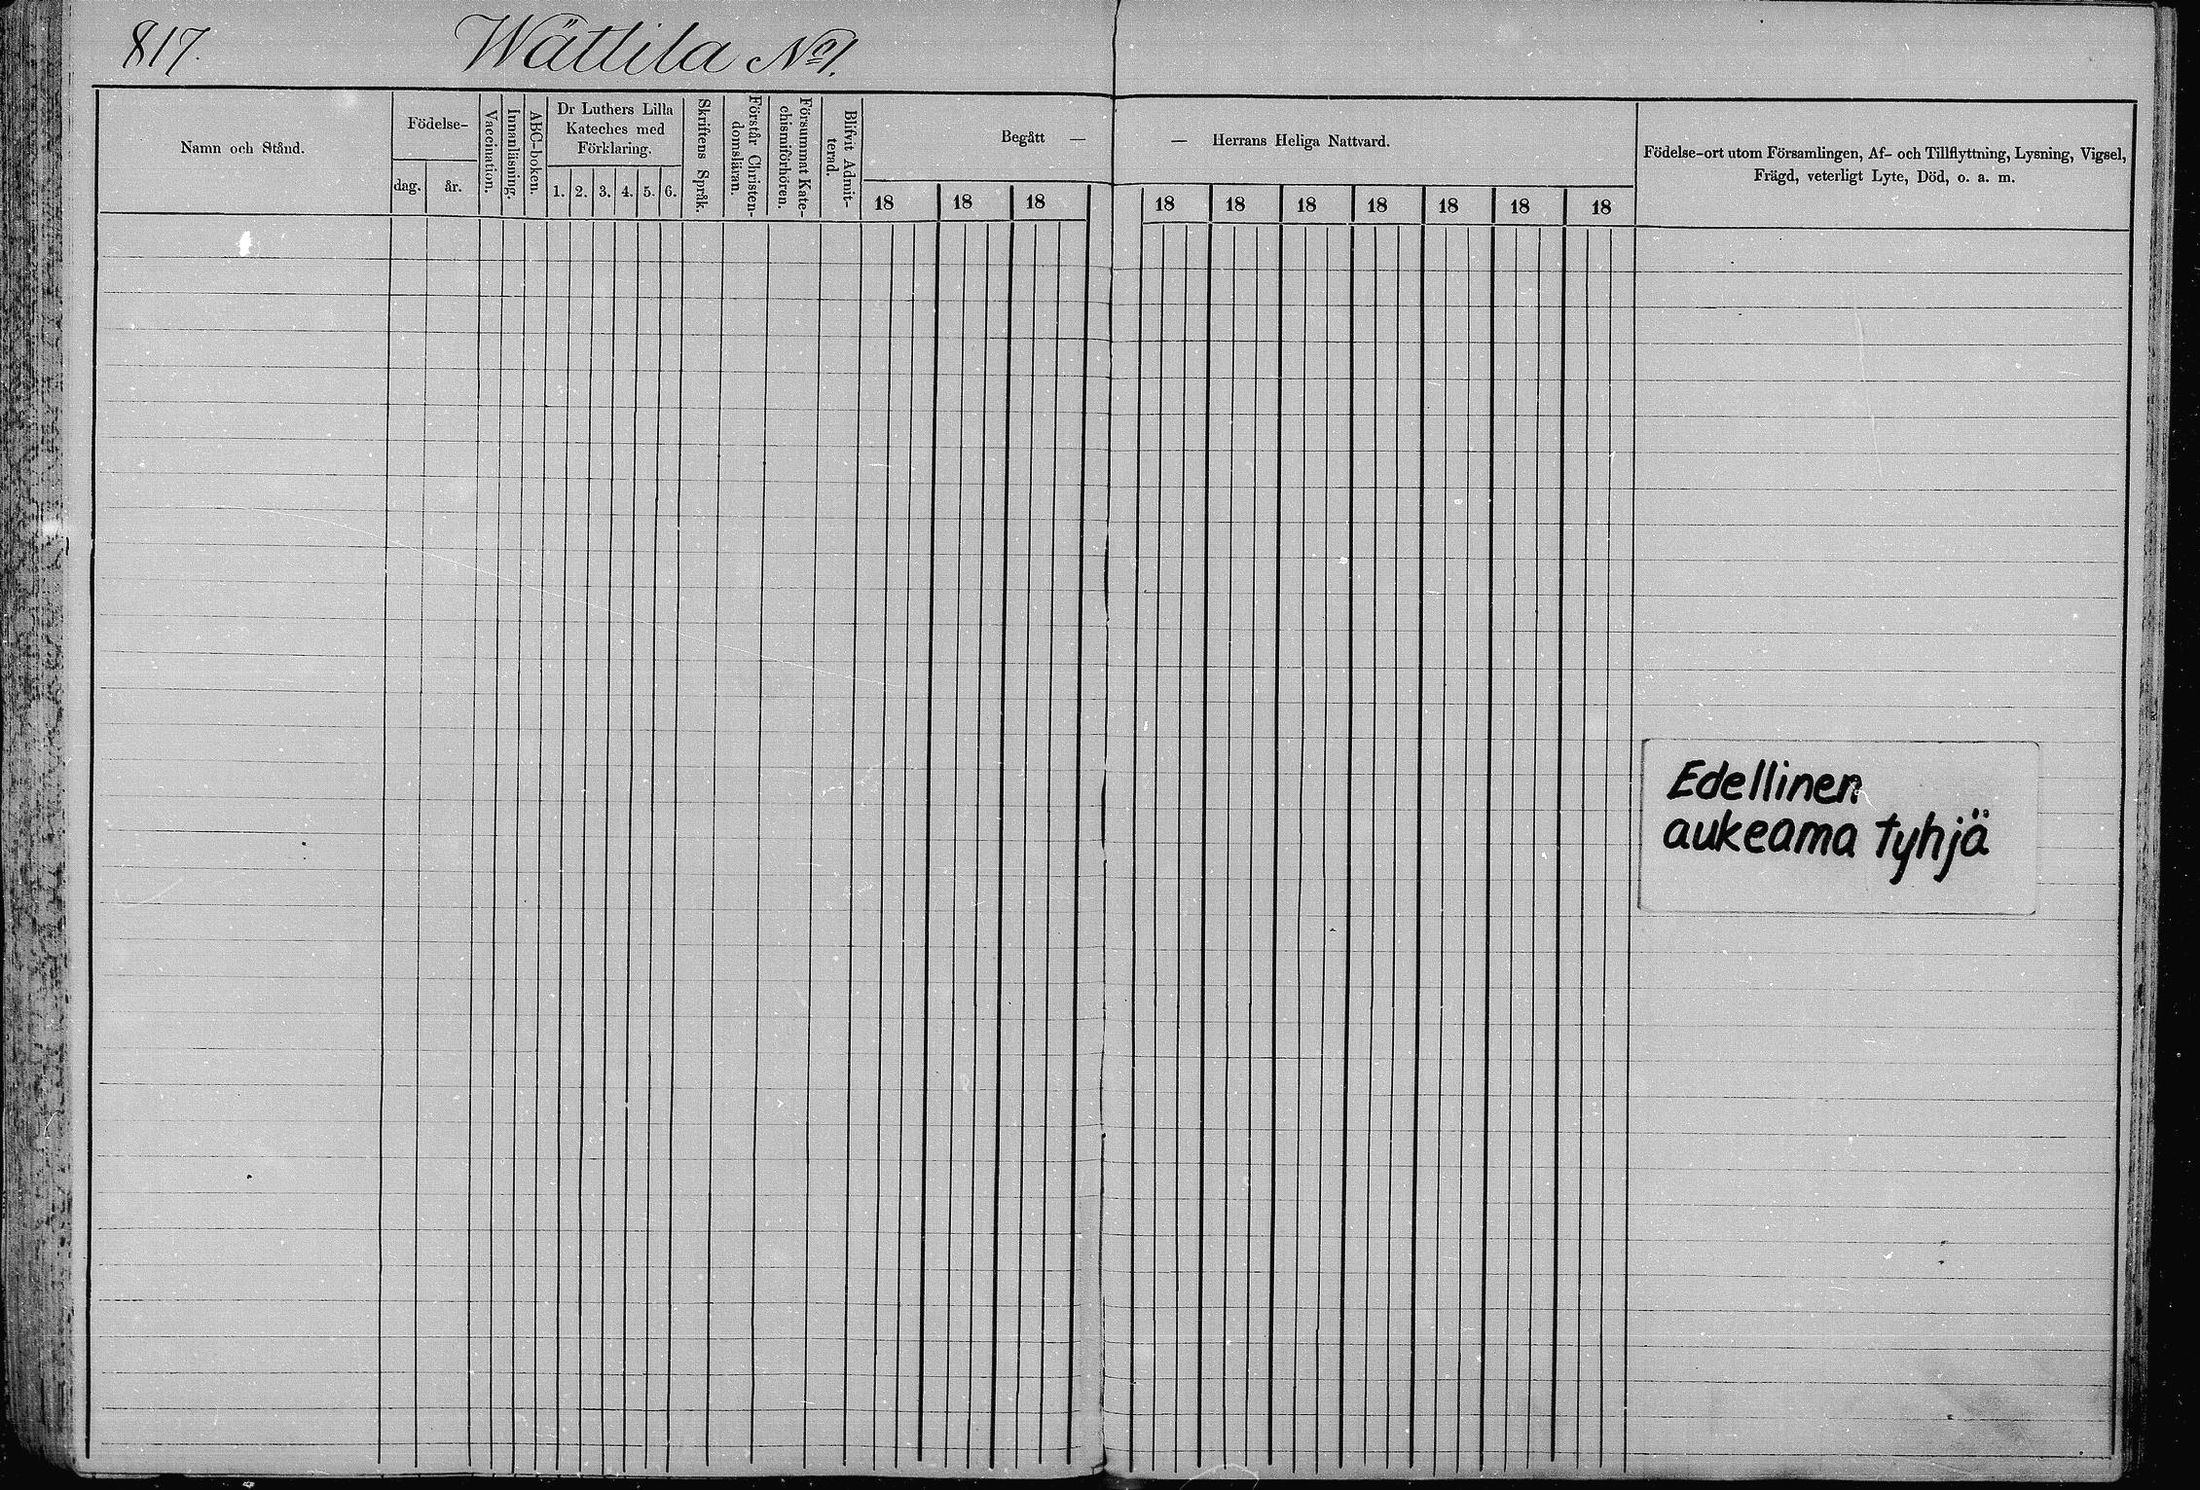 817.
Wättila No 1.
Namn och Stånd.
Födelse-
dag.
år.
Vaccination.
Innanläsning.
ABC-boken.
Dr Luthers Lilla
Kateches med
Förklaring.
1. 2. 3. 4. 5. 6.
Skriftens Språk.
Förstår Christen-
domsläran.
Försummat Kate-
chismiförhören.
Blifvit Admit-
terad.
Begått —
18 18 18
— Herrans Heliga Nattvard.
18 18 18 18 18 18 18
Födelse-ort utom Församlingen, Af- och Tillflyttning, Lysning, Vigsel,
Frägd, veterligt Lyte, Död, o. a. m.
Edellinen
aukeama tyhjä